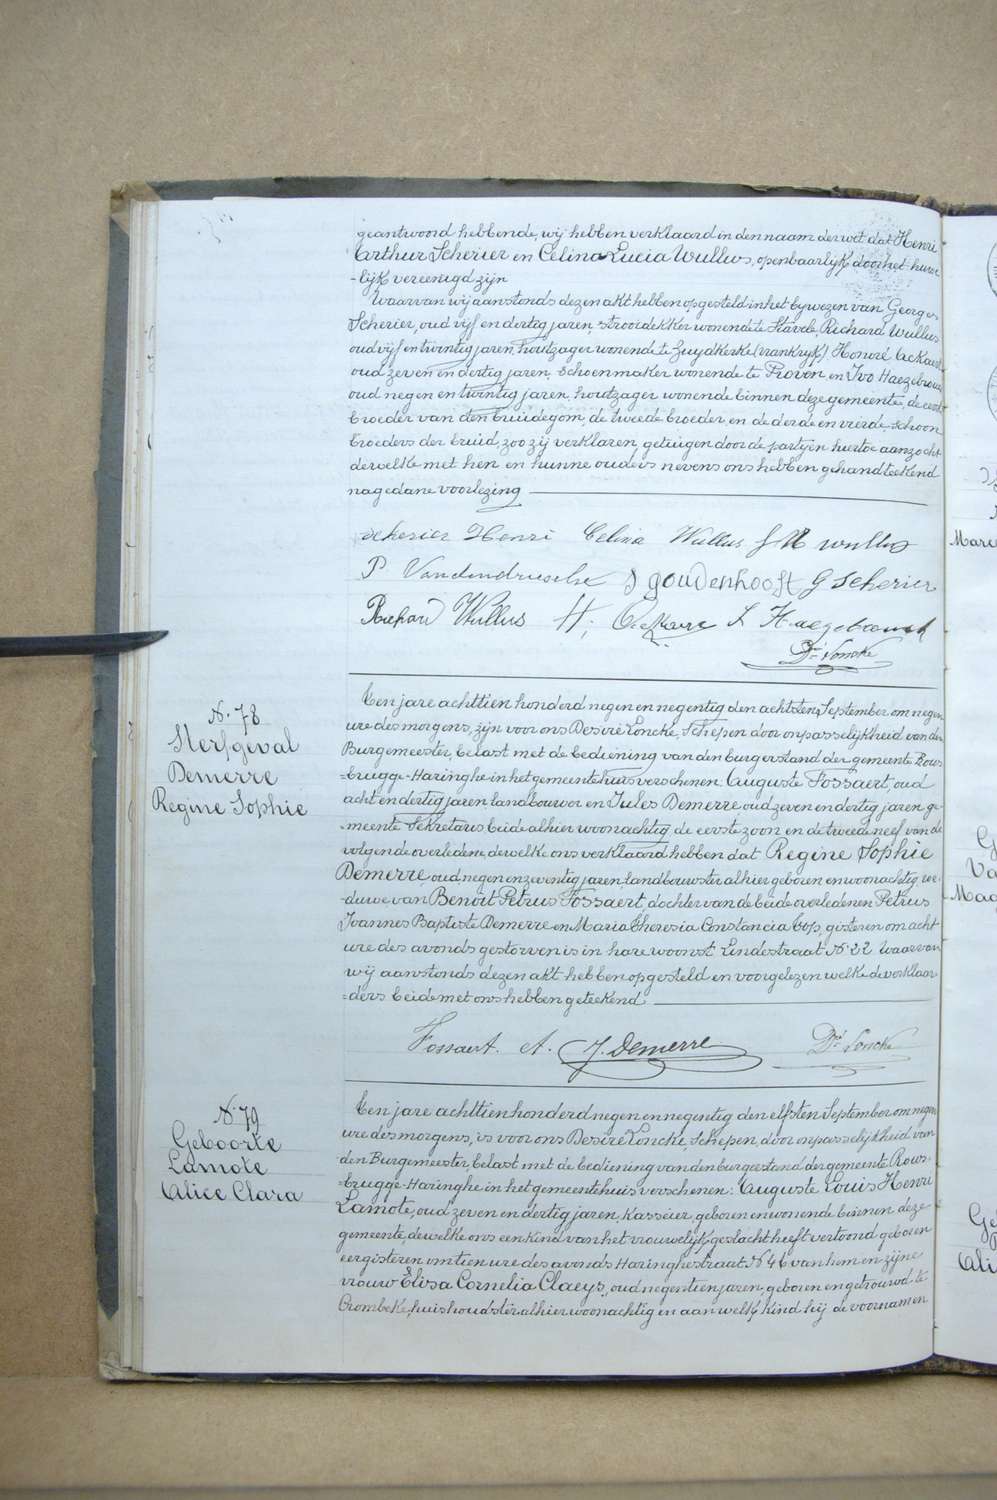 geantwoord hebbende, wij hebben verklaard in den naam der wet dat Henri
Arthur Scherier en Celina Lucia Wullus, openbaarlijk door het huwe
-lijk vereenigd zijn
Waarvan wij aanstonds dezen akt hebben opgesteld in het bywezen van Georges
Scherier, oud vijf en dertig jaren, strooidekker wonende te Stavele, Richard Wullus
oud vijf en twintig jaren, houtzager wonende te Zuydkerke (Frankryk), Honoré Ackaert
oud zeven en dertig jaren, schoenmaker wonende te Proven en Ivo Haezebrouck
oud negen en twintig jaren, houtzager wonende binnen deze gemeente, de eerste
broeder van den bruidegom, de tweede broeder, en de derde en vierde schoon
broeders der bruid, zoo zij verklaren, getuigen door de partyin hiertoe aanzocht
dewelke met hen en hunne ouders nevens ons hebben gehandteekend
na gedane voorlezing
Scherier Henri Celina Wullus wullus
P Vandendriesche S goudenhooft G Scherier
Richard Wullus H. Ackaert I Haezebrouck
Dré Loncke
N. 78
Sterfgeval
Demerre
Regine Sophie
Een jare achttien honderd negen en negentig den achtsten September om negen
ure des morgens, zijn voor ons Desiré Loncke, Schepen door onpasselijkheid van den
Burgemeester, belast met de bediening van den burgerstand der gemeente Rous
-brugge-Haringhe in het gemeentehuis verschenen: Auguste Fossaert, oud
acht en dertig jaren landbouwer en Jules Demerre oud zeven en dertig jaren ge-
-meente Sekretaris beide alhier woonachtig de eerste zoon en de tweede neef van de
volgende overledene, dewelke ons verklaard hebben dat Regine Sophie
Demerre, oud negen en zeventig jaren landbouwster alhier geboren en woonachtig we-
-duwe van Benoit Petrus Fossaert dochter van de beide overledenen Petrus
Joannes Baptiste Demerre en Maria Theresia Constancia Cop, gisteren om acht
ure des avonds gestorven is in hare woonst Lindestraat N° 22 Waarvan
wij aanstonds dezen akt hebben opgesteld en voorgelezen welke de verklaar
-ders beide met ons hebben geteekend
Fossaert A. J. Demerre Dré Loncke
N. 79
Geboorte
Lamote
Alice Clara
Een jare achttien honderd negen en negentig den elfsten September om negen
ure des morgens, is voor ons Desiré Loncke, Schepen, door onpasselijkheid van
den Burgemeester, belast met de bediening van den burgerstand der gemeente Rous-
-brugge-Haringhe in het gemeentehuis verschenen: Auguste Louis Henri
Lamote, oud zeven en dertig jaren, kassier, geboren en wonende binnen deze
gemeente, dewelke ons een kind van het vrouwelijk geslacht heeft vertoond geboren
eergisteren om tien ure des avonds Haringhestraat N° 46 van hem en zijne
vrouw Elisa Cornelia Claeys, oud negentien jaren, geboren en getrouwd te
Crombeke, huishoudster alhier woonachtig en aan welk kind hij de voornamen